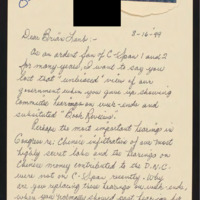 8-16-99
Dear Brian Lamb:-
As an ardent fan of C-Span 1 and 2
for many years, I want to say you
lost that "unbiased" view of our
government when you gave up showing
Committee hearings on week-ends and
substituted "Book Reviews".
Perhaps the most important hearings in
Congress re. Chinese infiltration of our most
highly secret labs and the hearings on
Chinese money contributed to the D.N.C.
were not on C-Span recently. Why
are you replacing these hearings on week-ends,
when you